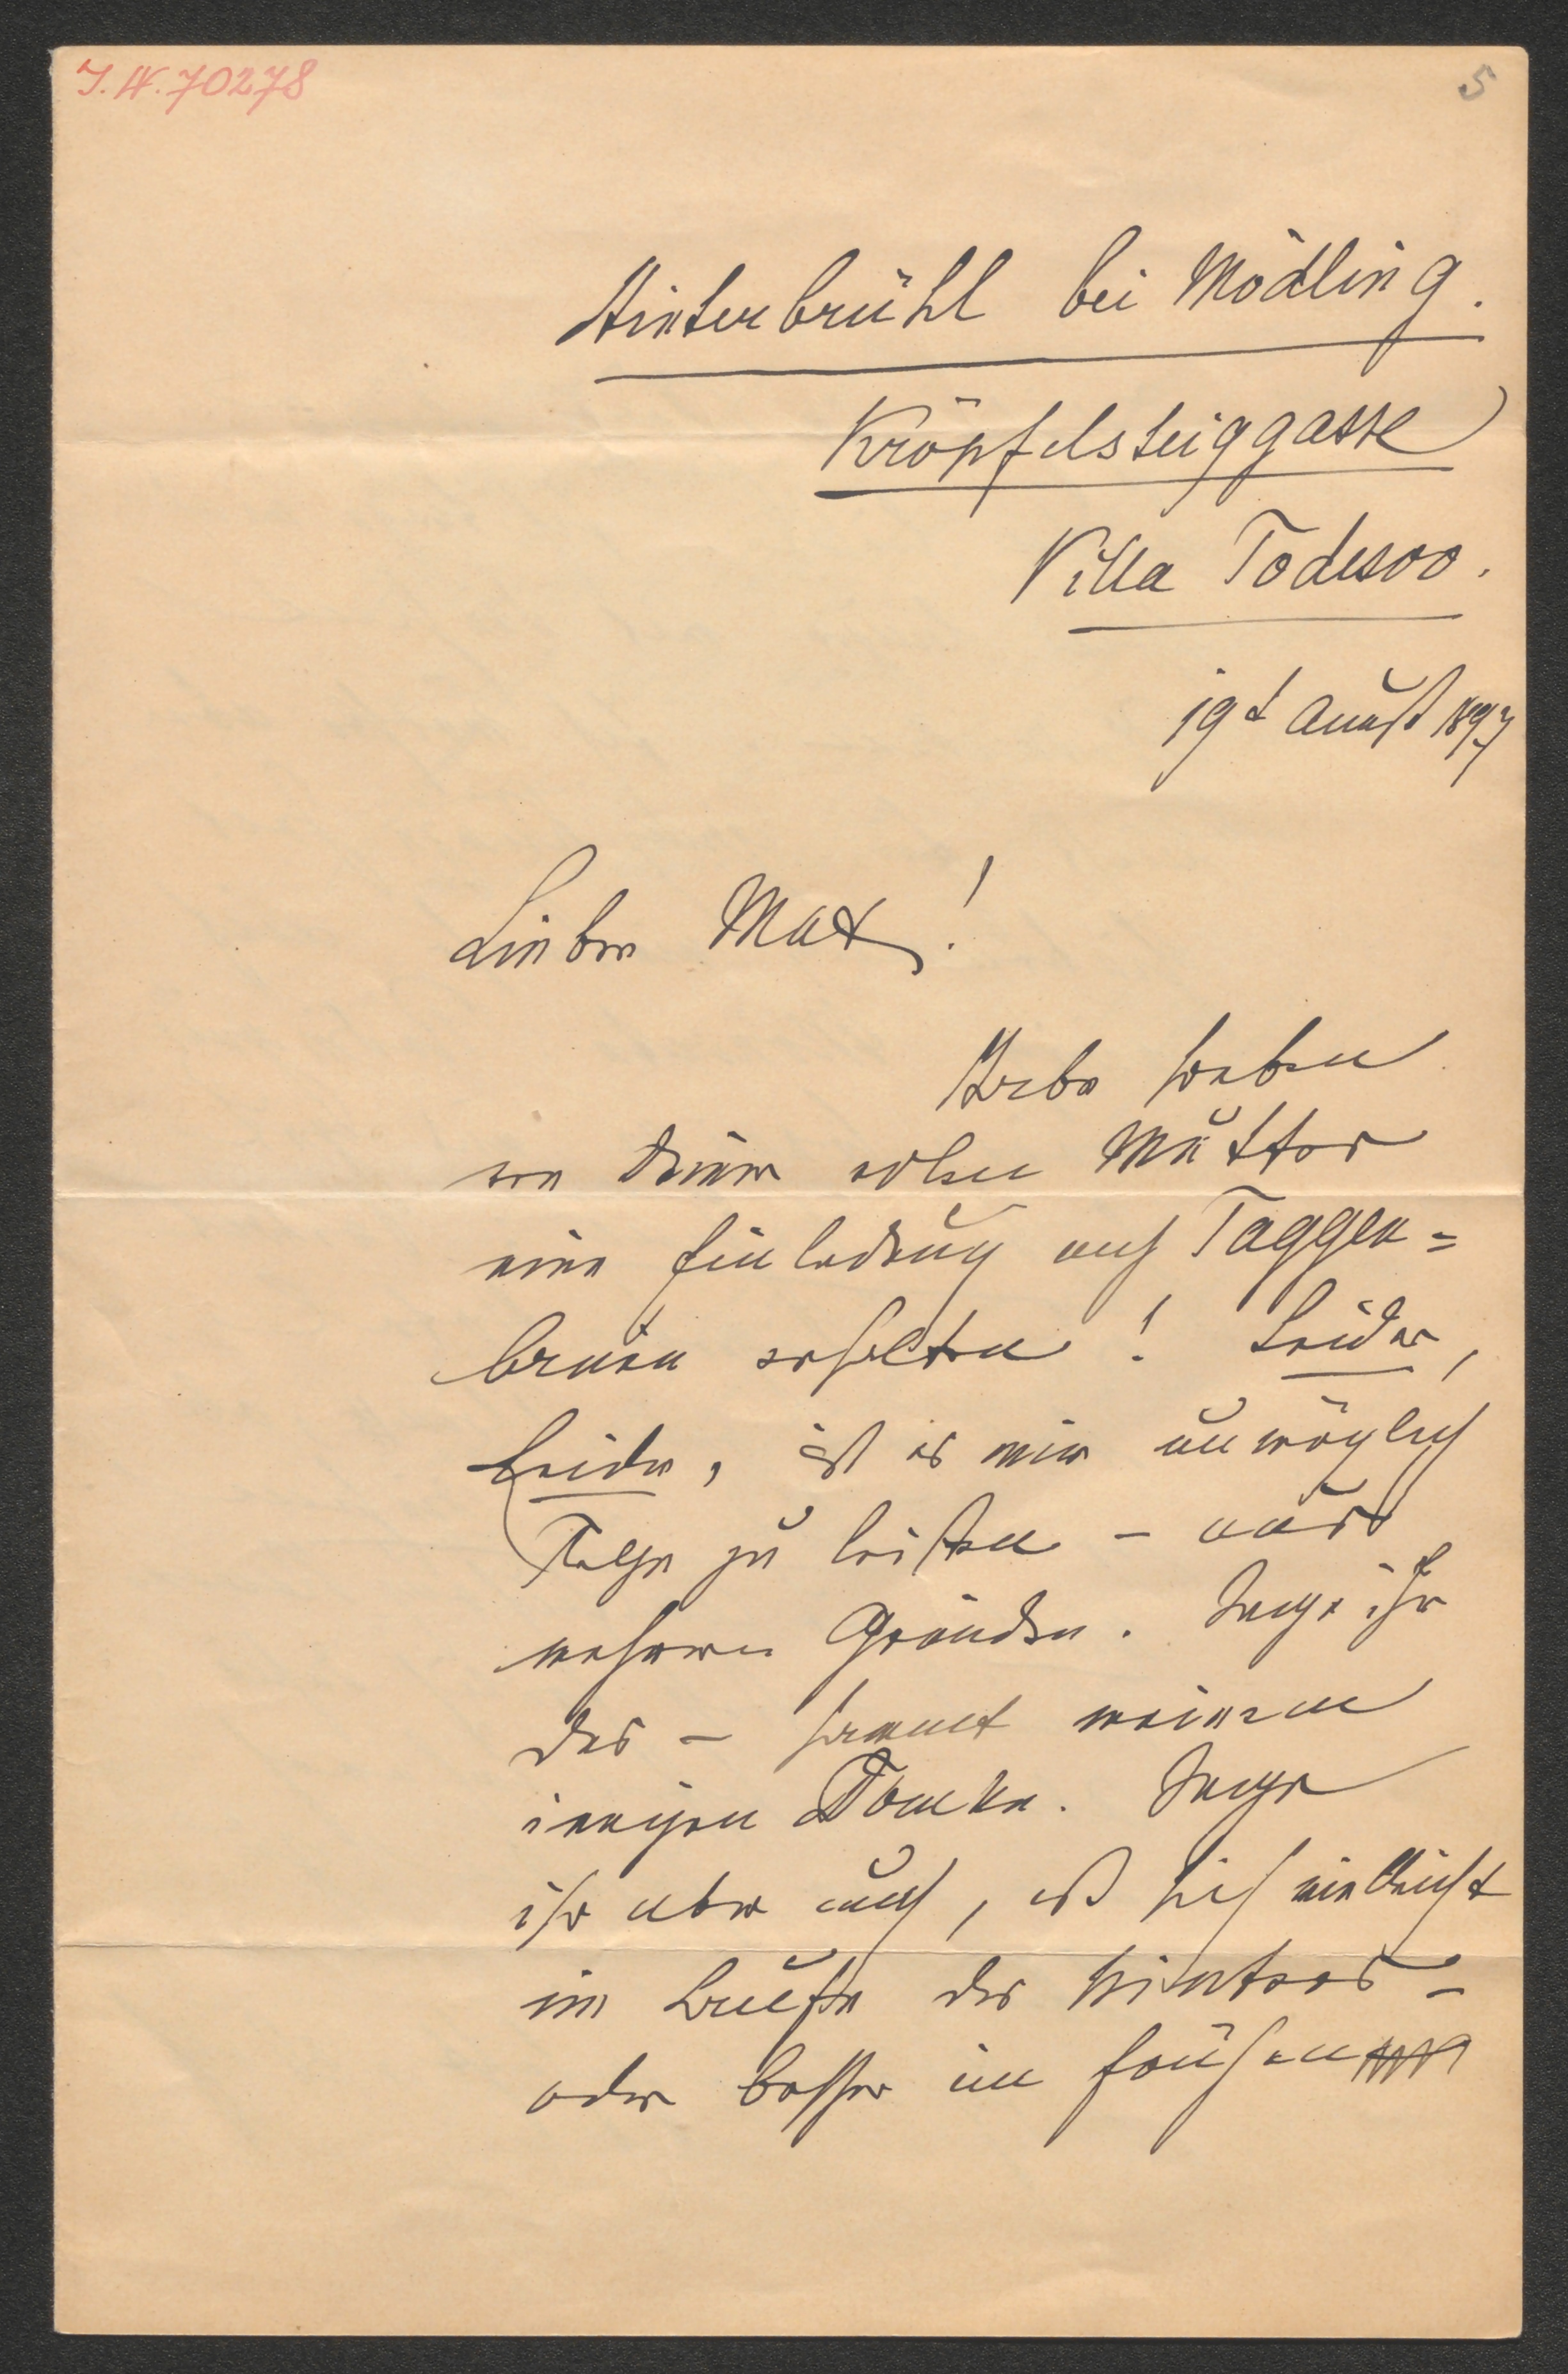 I.N. 70278
5
Hinterbrühl bei Mödling.
Kröpfelsteiggasse
Villa Todesco.
19t August 1897
Lieber Max!
Habe soeben
von Deiner edlen Mutter
eine Einladung auf Taggen=
brunn erhalten! Leider,
Leider, ist es mir unmöglich
Folge zu leisten – aus
mehreren Gründen. Sage ihr
das – sammt meinem
innigen Danke. Sage
ihr aber auch, daß ich vielleicht
im Laufe des Winters –
oder besser im frühen